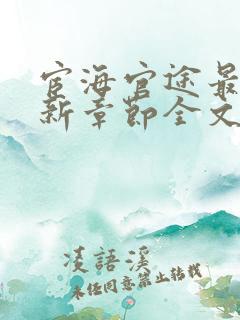 宦海官途最
新章節全文
凌語溪
未经同意禁止转载